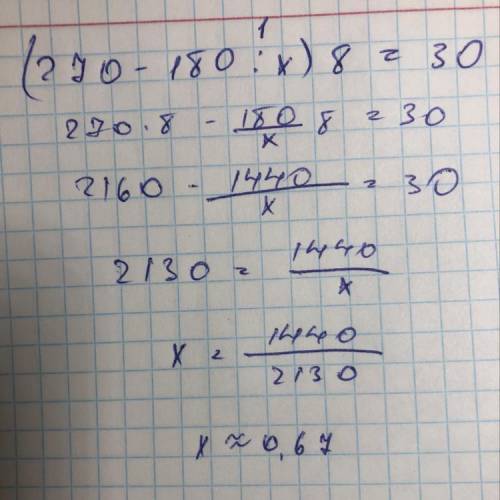 1
(270 - 180 : x) 8 = 30
270 · 8 - 180/x 8 = 30
2160 - 1440/x = 30
2130 = 1440/x
x = 1440/2130
x ≈ 0,67